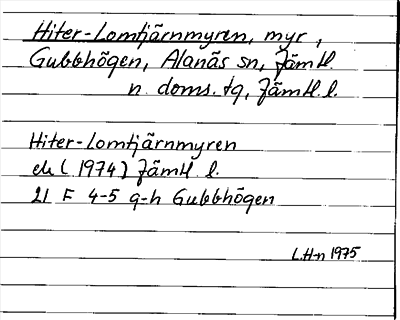 Hiter-Lomtjärnmyren, myr,
Gubbhögen, Alanäs sn, Jämtl.
n. doms. tg, Jämtl. l.
Hiter-Lomtjärnmyren
ek (1974) Jämtl l.
21 F 4-5 g-h Gubbhögen
L.H-n 1975